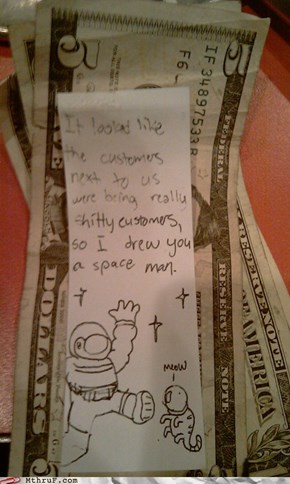 5
5
IF34897533B
F6
FEDERAL RESERVE NOTE
DOLLARS
RESERVE NOTE
AMERICA
It looked like
the customers
next to us
were being really
shitty customers,
so I drew you
a space man.
meow
MthruF.com